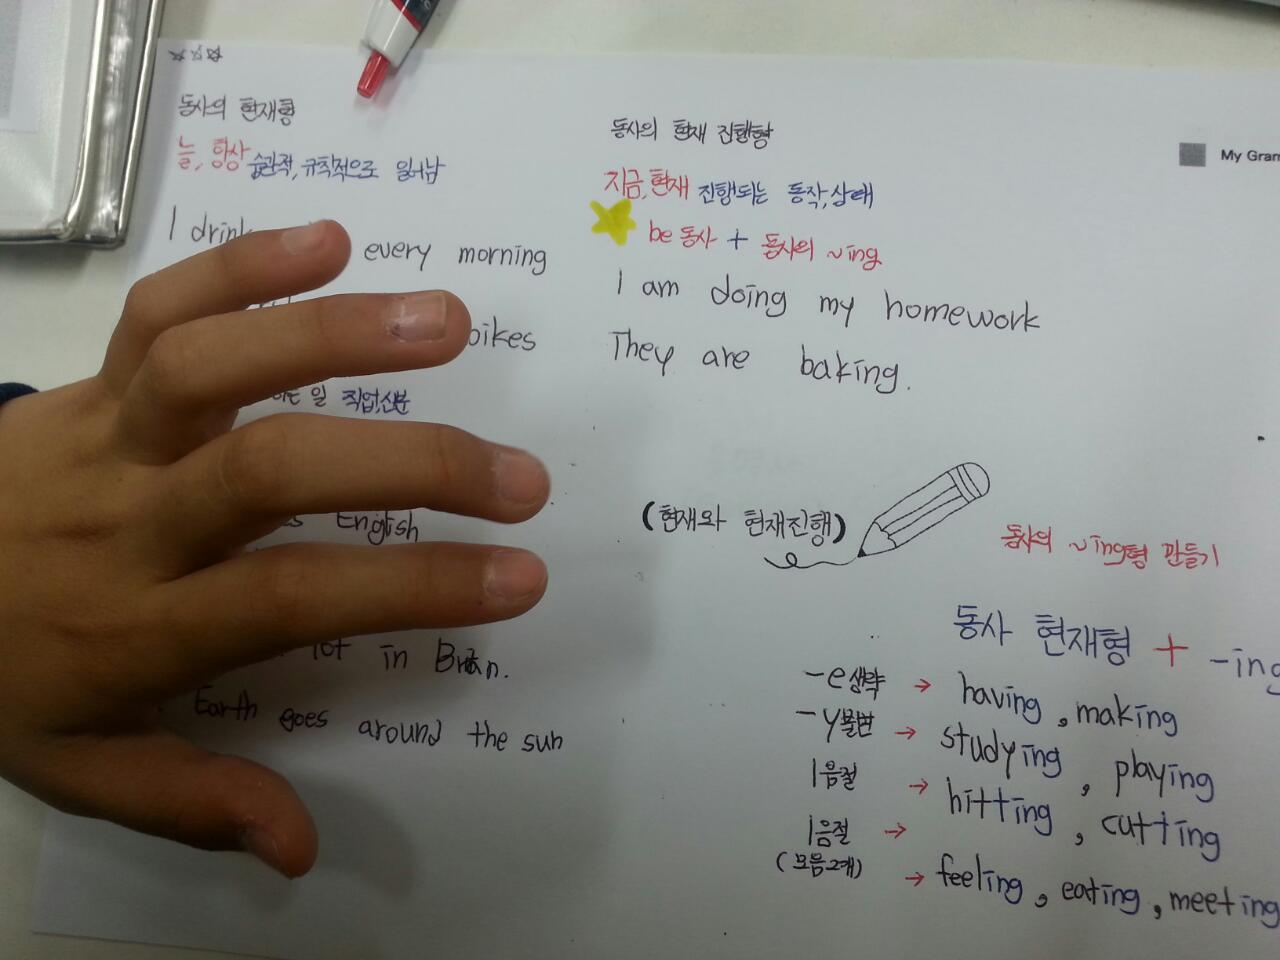 동사의 현재형
늘, 항상 습관적, 규칙적으로 일어남
I drink every morning
bikes
하는 일 직업,신분
English
lot in
Earth goes around the sun
동사의 현재 진행형
지금,현재 진행되는 동작,상태
be동사 + 동사의 ~ing
I am doing my homework
They are baking.
(현재와 현재진행)
My Gram
동사의 ~ing형 만들기
동사 현재형 + -ing
-e생략 → having, making
-y불변 → studying, playing
1음절 → hitting, cutting
1음절
(모음2개) → feeling, eating, meeting